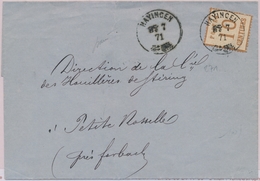 HAYINGEN
7
71
HAYINGEN
7
71
Direction de la Cie
des Houillères de Stiring
à Petite Rosselle
(près forbach)